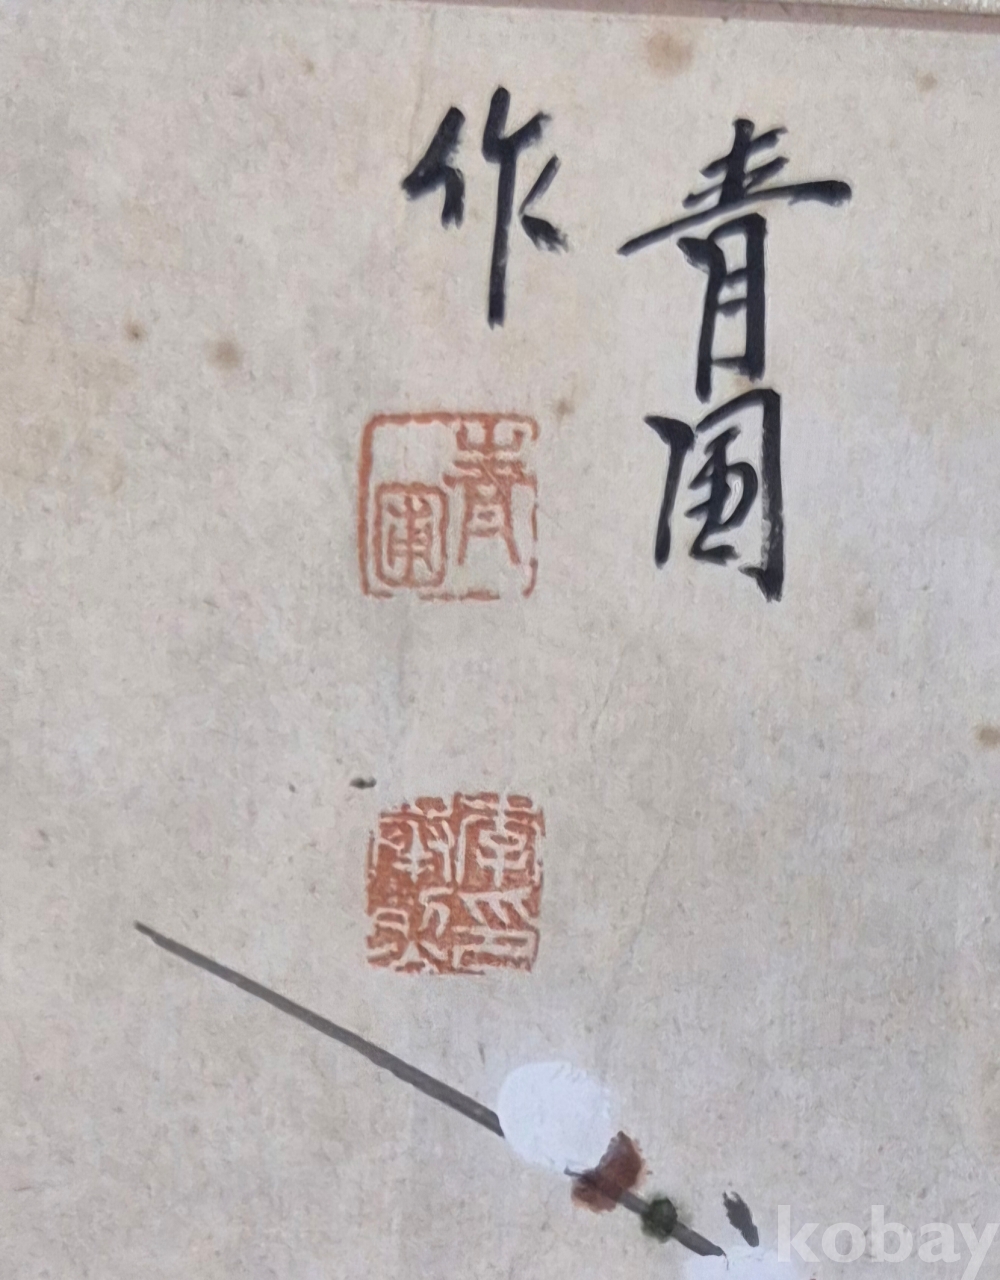 青圃
作
青圃
kobay